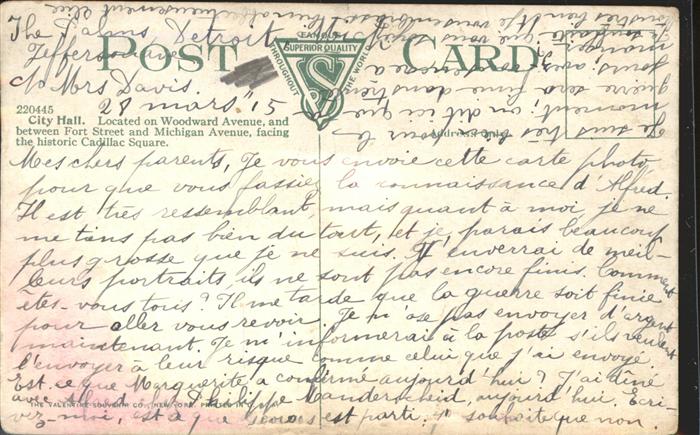 The Palms, Detroit
Jefferson
c/o Mrs Davis.
28 mars '15
POST CARD
FAMOUS
SUPERIOR QUALITY
THROUGHOUT THE WORLD
220445
City Hall. Located on Woodward Avenue, and
between Fort Street and Michigan Avenue, facing
the historic Cadillac Square.
Address Only
Mes chers parents, Je vous envoie cette carte photo
pour que vous fassiez la connaissance d'Alfred.
Il est très ressemblant, mais quant à moi je ne
me tins pas bien du tout, et je parais beaucoup
plus grosse que je ne suis. J'enverrai de meil-
leurs portraits, ils ne sont pas encore finis. Comment
êtes-vous tous? Il me tarde que la guerre soit finie
pour aller vous revoir. Je n'ose pas envoyer d'argent
maintenant. Je m'informerai à la poste s'ils veulent
l'envoyer à leur risque comme celui que j'ai envoyé.
Est-ce que Marguerite a confirmé aujourd'hui? J'ai dîné
avec Alfred Philippe Manderscheid, aujourd'hui. Ecri-
vez-moi, est-ce que est parti. Je souhaite que non.
THE VALENTINE-SOUVENIR CO., NEW YORK. PRINTED IN
Je suis très pour le
moment, on dit ici que la
guerre sera finie dans
jours, avez-vous
manger